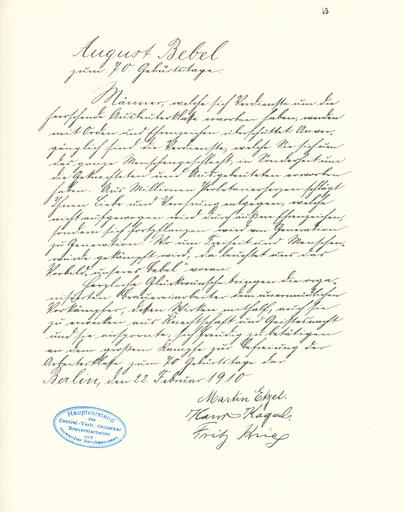 63
August Bebel
zum 70. Geburtstage.
Männer, welche sich Verdienste um die
herrschende Ausbeuterklasse erworben haben, werden
mit Orden und Ehrenzeichen überschüttet. Unver-
gänglich sind die Verdienste, welche Sie sich um
das ganze Menschengeschlecht, in Sonderheit um
die Geknechteten und Ausgebeuteten erworben
haben. Aus Millionen Proletarierherzen schlägt
Ihnen Liebe und Verehrung entgegen, welche
nicht aufgewogen wird durch äußere Ehrenzeichen,
sondern sich fortpflanzen wird von Generation
zu Generation. Wo um Freiheit und Menschen-
würde gekämpft wird, da leuchtet uns das
Vorbild „unseres Bebel“ voran.
Herzliche Glückwünsche bringen die orga-
nisierten Brauereiarbeiter dem unermüdlichen
Vorkämpfer, dessen Wirken mithalf, auch sie
zu erwecken aus Knechtschaft und Geistesnacht
und sie anspornte, sich freudig zu betätigen
an dem großen Kampfe zur Befreiung der
Arbeiterklasse zum 70 Geburtstage dar
Berlin, den 22. Februar 1910
Martin Etzel.
Hans
Fritz Krieg
Hauptvorstand
des
Central-Verb. deutscher
Brauereiarbeiter
und
verwandter Berufsgenossen